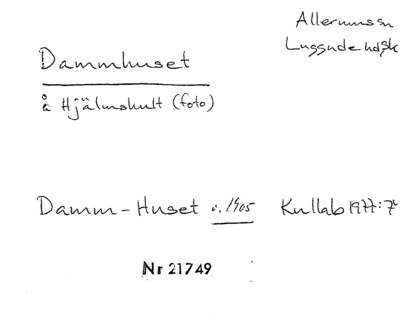 Allerums sn
Luggude hd, Sk
Dammhuset
å Hjälmshult (foto)
Damm-Huset o. 1905 Kullab 1977:7
Nr 21749